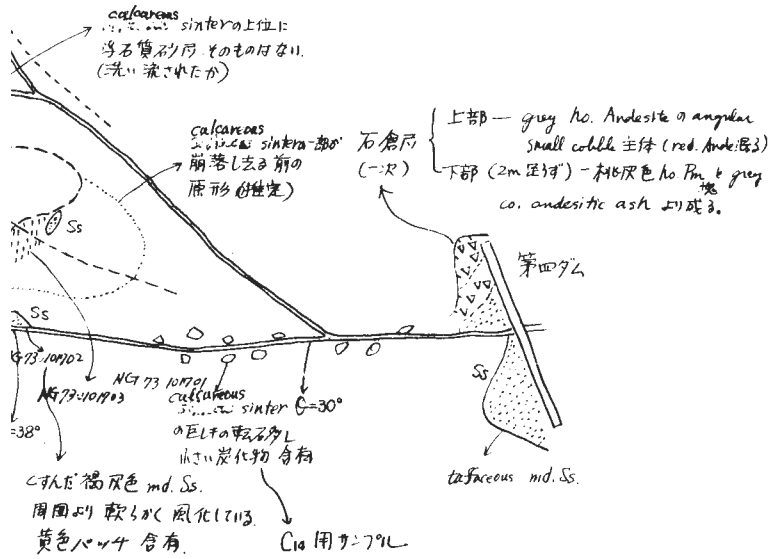 calcareous
sinterの上位に
浮石質砂层そのものはない
(洗い流されたか)
calcareous
sinter一部が
崩落し去る前の
原形(推定)
石倉层
(一次)
上部 — grey ho. Andesite の angular
small cobble 主体 (red. Ande.混る)
下部 (2m足らず) — 桃灰色 ho. Pm塊と grey
co. andesitic ash より成る。
第四ダム
Ss
Ss
Ss
G73.101702
NG73.101703
NG 73 101701
calcareous
sinter
の巨レキの転石多し
小さい炭化物 含有
G=30°
=38°
くすんだ褐灰色 md. Ss.
周囲より軟らかく風化している
黄色パッチ 含有.
C14用サンプル
tuffaceous md. Ss.